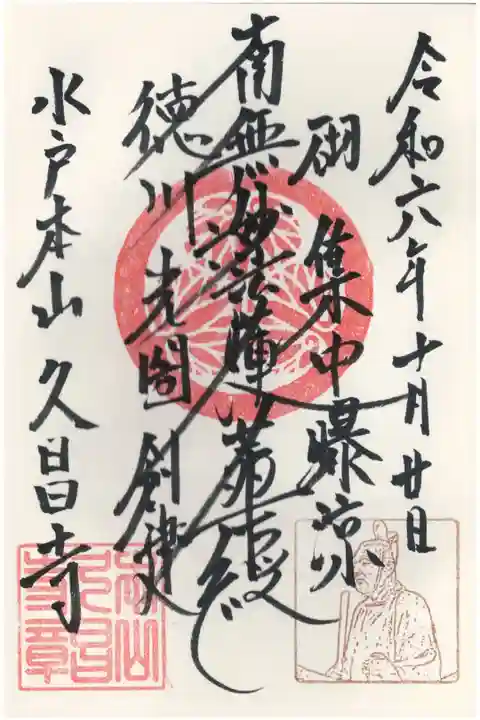 令和六年十月廿日
集中曝涼
南無妙法蓮華経
徳川光圀創建
水戸本山 久昌寺